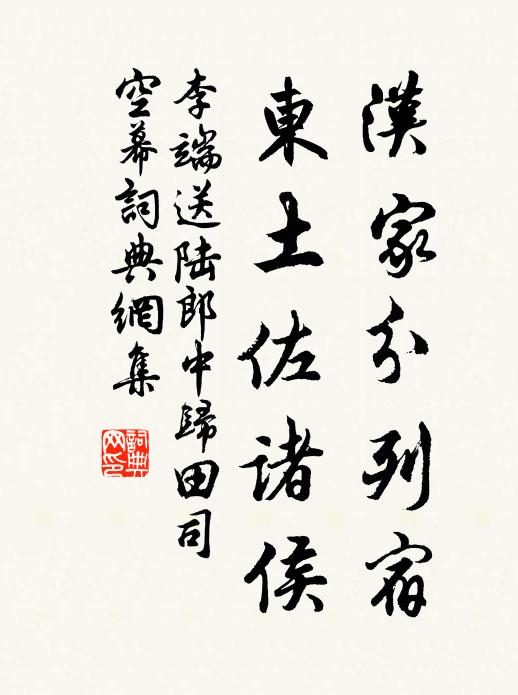 漢家分列宿
東土佐諸侯
李端送陸郎中歸田司
空幕詞典網集
詞典网印